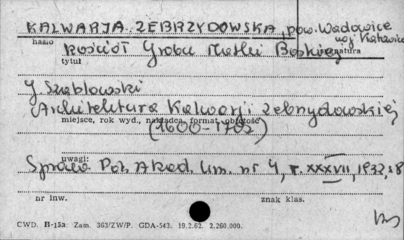 KALWARJA ZEBRZYDOWSKA, pow. Wadowice
woj. Katowice
hasło sygnatura
Kościół Grobu Matki Boskiej
tytuł
J Szablowski
Architektura Kalwarji Zebrzydowskiej
miejsce, rok wyd., nakładca, format, objętość
(1600-1702)
uwagi:
Spraw. Pol. Akad. Um. nr 4, t. XXXVII, 1932, s 8
nr inw. znak klas.
CWD. H-15a: Zam. 363/ZW/P. GDA-543. 19.2.62. 2.260.000.